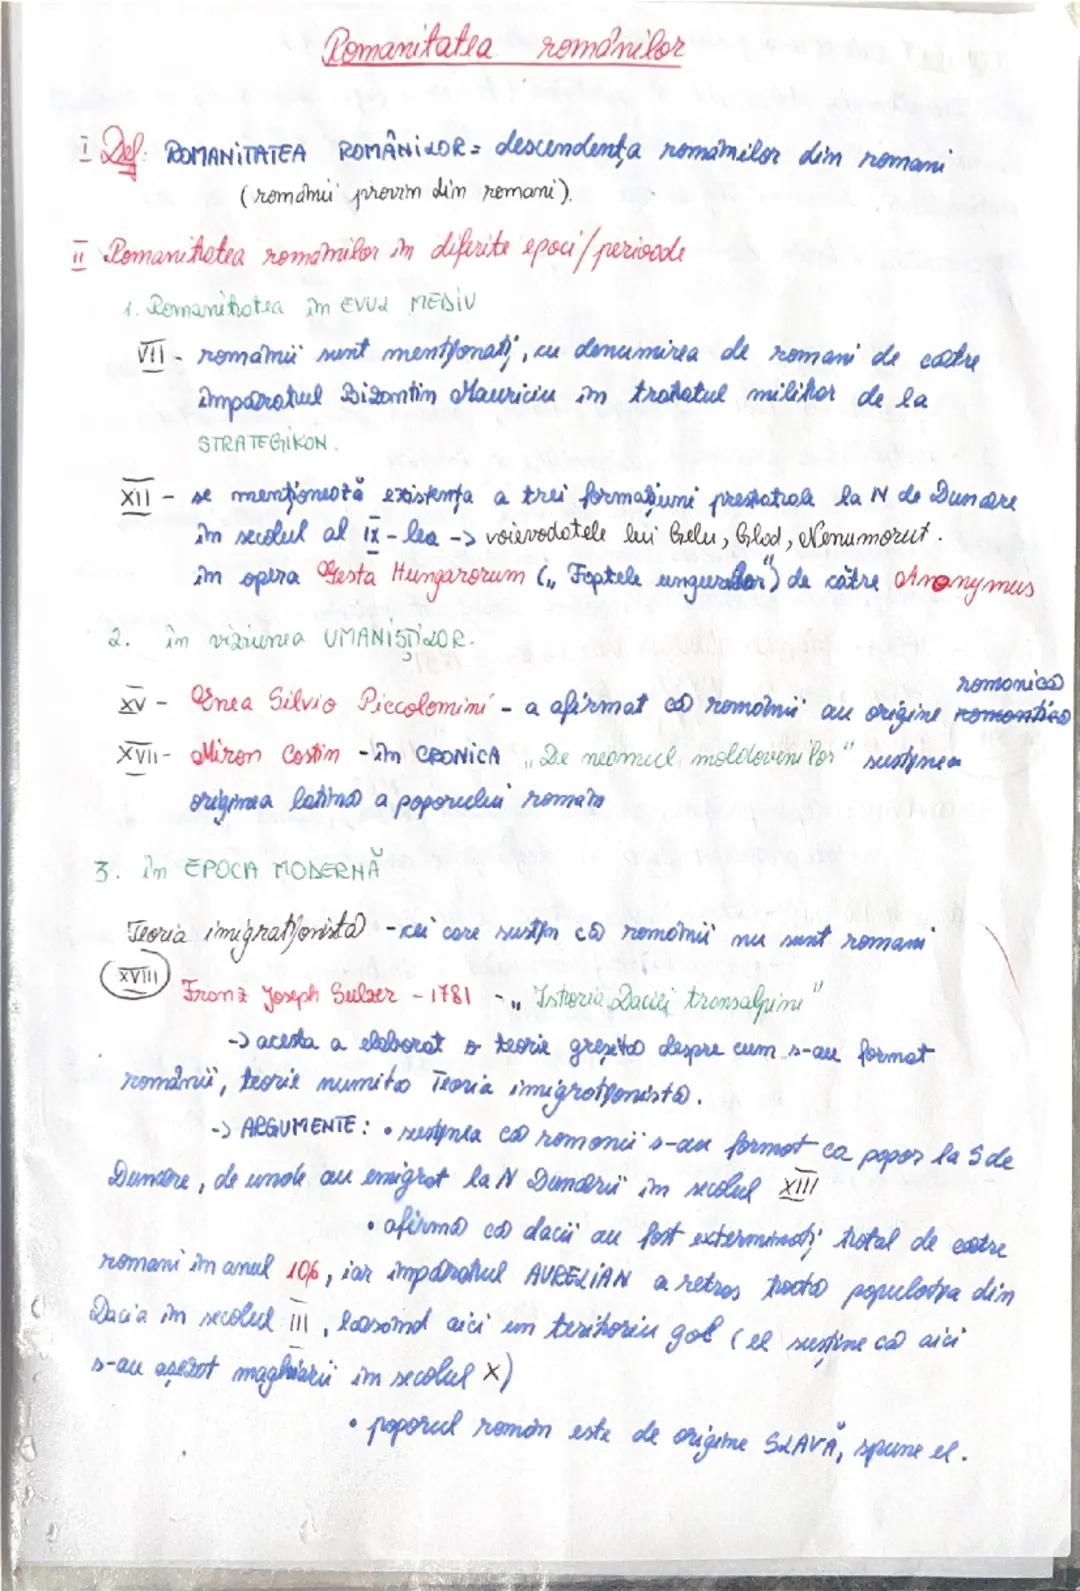 Romanitatea românilor
I Def: ROMANITATEA ROMÂNILOR = descendența românilor din romani
(românii provin din romani).
II Romanitatea românilor în diferite epoci/perioade
1. Romanitatea în EVUL MEDIU
VII - românii sunt menționați, cu denumirea de romani de către
împăratul Bizantin Mauriciu în tratatul militar de la
STRATEGIKON.
XII - se menționează existența a trei formațiuni prestatale la N de Dunăre
în secolul al IX-lea -> voievodatele lui Gelu, Glad, Menumorut.
în opera Gesta Hungarorum („Faptele ungurilor") de către Anonymus
2. în viziunea UMANIȘTILOR.
romanică
XV - Enea Silvio Piccolomini - a afirmat că românii au origine romantică
XVII - Miron Costin - în CRONICA „De neamul moldovenilor" susținea
originea latină a poporului român
3. în EPOCA MODERNĂ
Teoria imigraționistă - cei care susțin că românii nu sunt romani
XVIII
Franz Joseph Sulzer - 1781 - „Istoria Daciei transalpine"
-> acesta a elaborat o teorie greșită despre cum s-au format
românii, teorie numită Teoria imigraționistă.
-> ARGUMENTE: • susținea că romanii s-au format ca popor la S de
Dunăre, de unde au emigrat la N Dunării în secolul XIII
• afirmă că dacii au fost exterminați total de către
romani în anul 106, iar împăratul AURELIAN a retras toată populația din
Dacia în secolul III, lăsând aici un teritoriu gol (el susține că aici
s-au așezat maghiarii în secolul X)
• poporul român este de origine SLAVĂ, spune el.